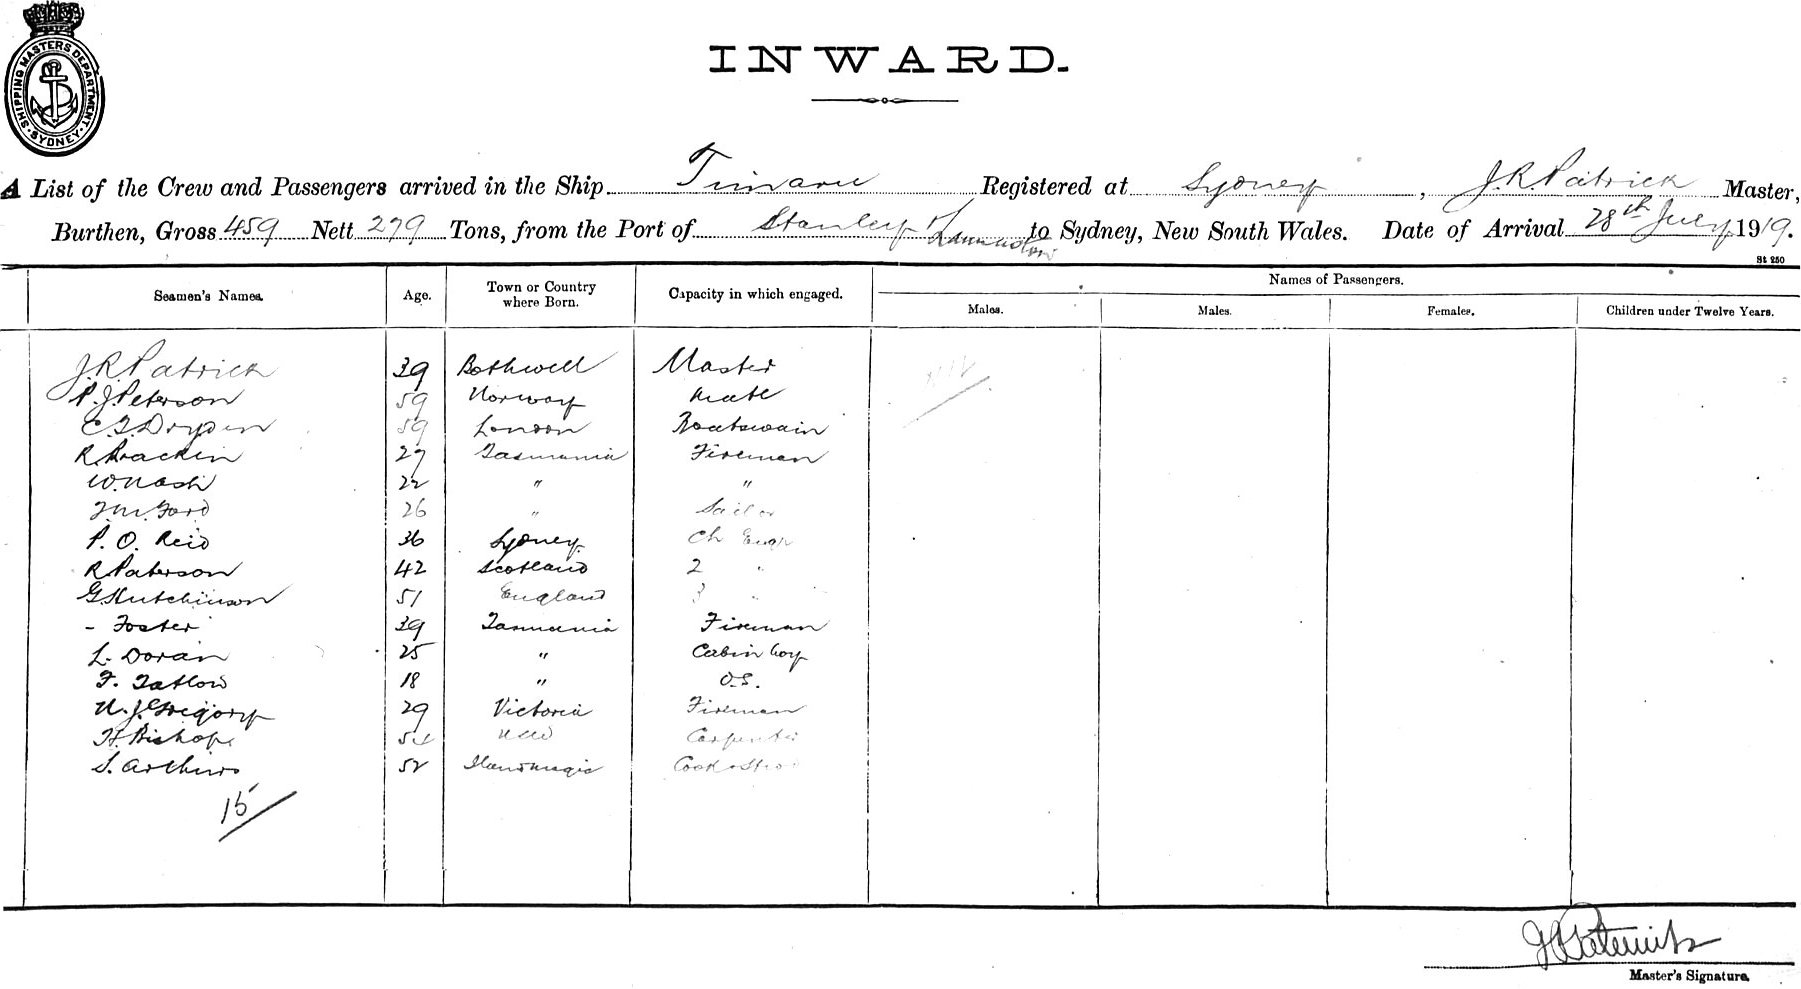 SHIPPING MASTERS DEPARTMENT
SYDNEY
INWARD.
A List of the Crew and Passengers arrived in the Ship Timaru Registered at Sydney, J.R. Patrick Master,
Burthen, Gross 459 Nett 279 Tons, from the Port of Stanley & to Sydney, New South Wales. Date of Arrival 28th July 1919.
St 250
Seamen's Names. Age. Town or Country where Born. Capacity in which engaged. Names of Passengers.
Males. Males. Females. Children under Twelve Years.
J.R. Patrick 39 Bothwell Master
P. J. Peterson 59 Norway Mate
59 London Boatswain
R. Bracken 27 Tasmania Fireman
W. Nash 22 " "
Ford 26 " Sailor
P. O. Reid 36 Sydney Ch Engr
R Paterson 42 Scotland 2 "
G. Hutchinson 51 England 3 "
- Foster 39 Tasmania Fireman
L. Doran 25 " Cabin boy
F. Tatlow 18 " O.S.
Gregory 29 Victoria Fireman
H. Bishop Carpenter
S. Arthurs 52 Cook &
15
Master's Signature.